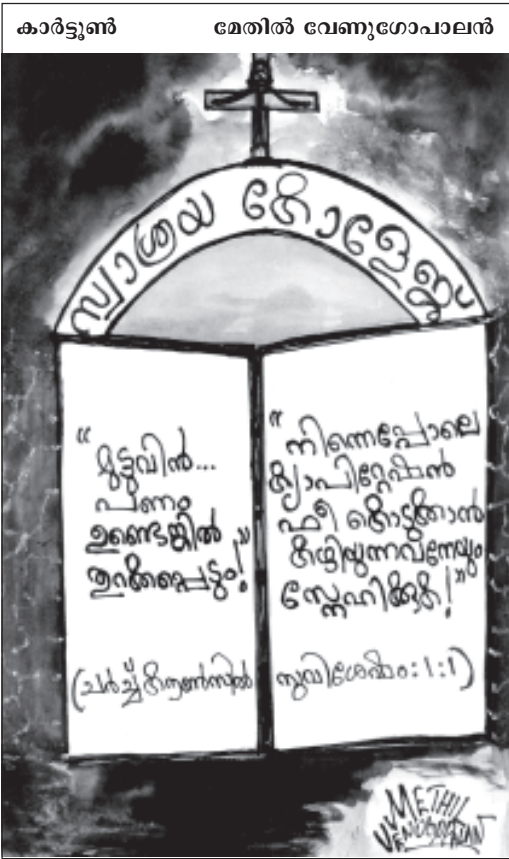 കാർട്ടൂൺ മേതിൽ വേണുഗോപാലൻ
സ്വാശ്രയ കോളേജ്
"മുട്ടുവിൻ...
പണം
ഉണ്ടെങ്കിൽ
തുറക്കപ്പെടും!"
"നിന്നെപ്പോലെ
ക്യാപിറ്റേഷൻ
ഫീ കൊടുക്കാൻ
കഴിയുന്നവനേയും
സ്നേഹിക്കുക!"
(ചർച്ച് കൗൺസിൽ സുവിശേഷം:1:1)
METHIL
VENUGOPALAN